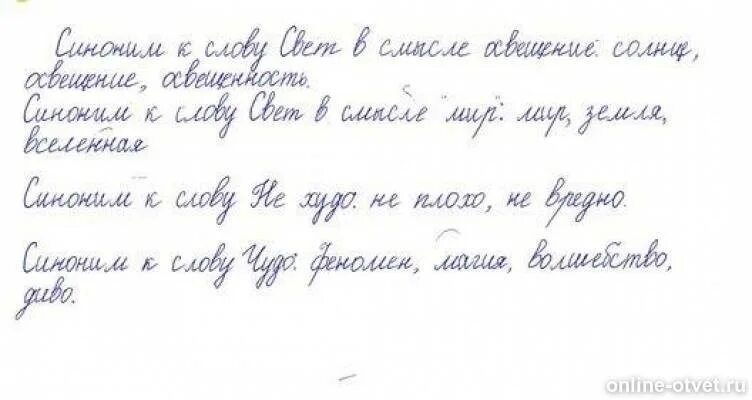 Синоним к слову Свет в смысле освещение: солнце,
освещение, освещенность.
Синоним к слову Свет в смысле "мир": мир, земля,
вселенная
Синоним к слову Не худо: не плохо, не вредно.
Синоним к слову Чудо: феномен, магия, волшебство,
диво.
online-otvet.ru